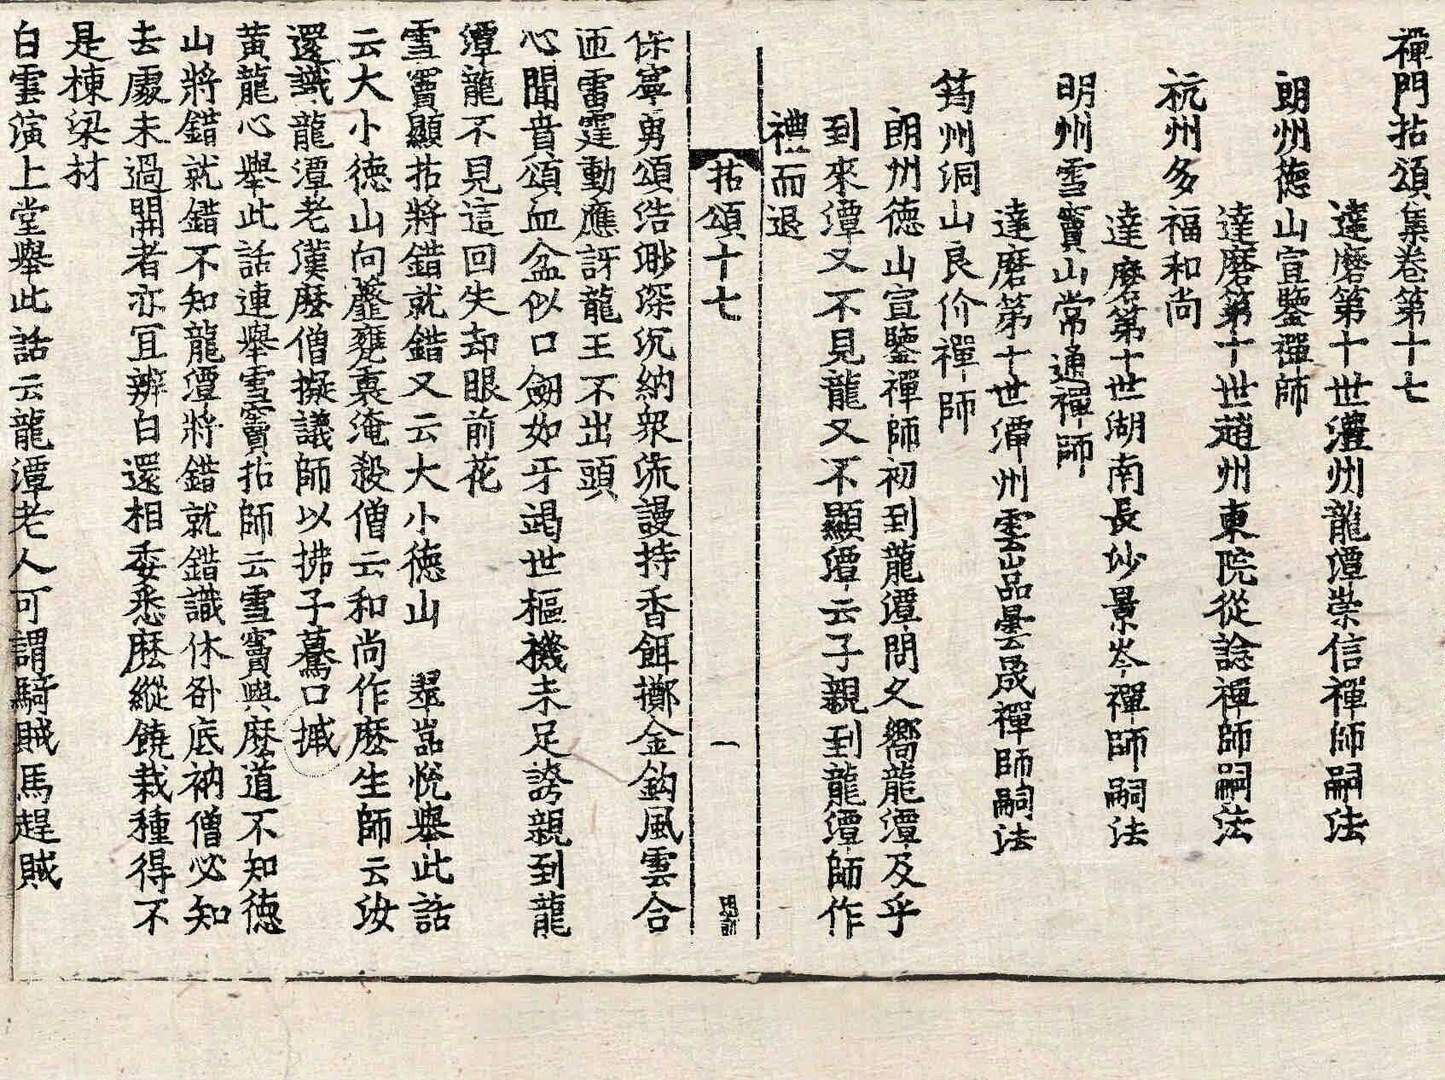 禪門拈頌集卷第十七
達磨第十世澧州龍潭崇信禪師嗣法
朗州德山宣鑒禪師
達磨第十世趙州東院從諗禪師嗣法
杭州多福和尚
達磨第十世湖南長沙景岑禪師嗣法
明州雪竇山常通禪師
達磨第十世潭州雲嵓曇晟禪師嗣法
筠州洞山良价禪師
朗州德山宣鑒禪師初到龍潭問久嚮龍潭及乎
到來潭又不見龍又不顯潭云子親到龍潭師作
禮而退
拈頌十七
一
保寧勇頌浩渺深沉納衆流謾持香餌擲金鈎風雲合
匝雷霆動應訝龍王不出頭
心聞賁頌血盆似口劒如牙竭世樞機未足誇親到龍
潭龍不見這回失却眼前花
雪竇顯拈將錯就錯又云大小德山　翠嵓悅舉此話
云大小德山向虀甕裏淹殺僧云和尚作麽生師云汝
還識龍潭老漢麽僧擬議師以拂子驀口摵
黃龍心舉此話連舉雪竇拈師云雪竇與麽道不知德
山將錯就錯不知龍潭將錯就錯識休咎底衲僧必知
去處未過關者亦冝辨白還相委悉麽縱饒栽種得不
是棟梁材
白雲演上堂舉此話云龍潭老人可謂騎賊馬趕賊